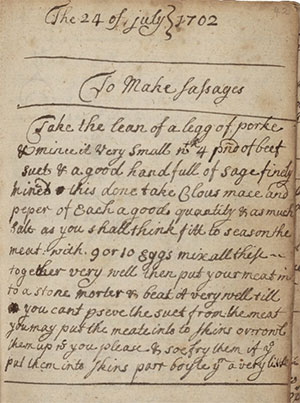 The 24 of july} 1702
To Make sassages
Take the lean of a legg of porke
& mince it very small wth 4 pnd of beef
suet & a good handfull of sage finely
minct this done take Clous mace and
peper of Each a good quantity & as much
salt as you shall think fitt to season the
meat with 9 or 10 Eggs mix all thes
together very well then put your meat in
to a stone morter & beat it very well till
you cant pseve the suet from the meat
you may put the meate into skins or roul
them up wn you please & soe fry them if yu
put them into skins part boyle ym a very little